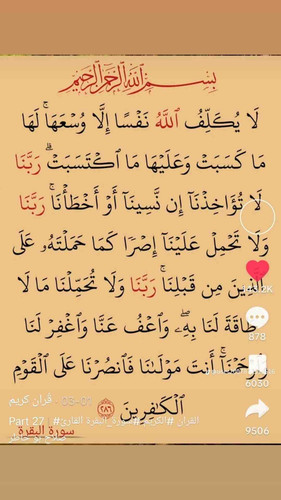 بِسْمِ ٱللَّهِ ٱلرَّحْمَٰنِ ٱلرَّحِيمِ
لَا يُكَلِّفُ ٱللَّهُ نَفْسًا إِلَّا وُسْعَهَا ۚ لَهَا
مَا كَسَبَتْ وَعَلَيْهَا مَا ٱكْتَسَبَتْ ۗ رَبَّنَا
لَا تُؤَاخِذْنَآ إِن نَّسِينَآ أَوْ أَخْطَأْنَا ۚ رَبَّنَا
وَلَا تَحْمِلْ عَلَيْنَآ إِصْرًا كَمَا حَمَلْتَهُۥ عَلَى
ٱلَّذِينَ مِن قَبْلِنَا ۚ رَبَّنَا وَلَا تُحَمِّلْنَا مَا لَا
طَاقَةَ لَنَا بِهِۦ ۖ وَٱعْفُ عَنَّا وَٱغْفِرْ لَنَا
وَٱرْحَمْنَآ ۚ أَنتَ مَوْلَىٰنَا فَٱنصُرْنَا عَلَى ٱلْقَوْمِ
ٱلْكَٰفِرِينَ ٢٨٦
سورة البقرة
878
6030
9506
قرآن كريم · 03-01
Part 27 | القرآن #الكريم #سورة_البقرة القارئ#